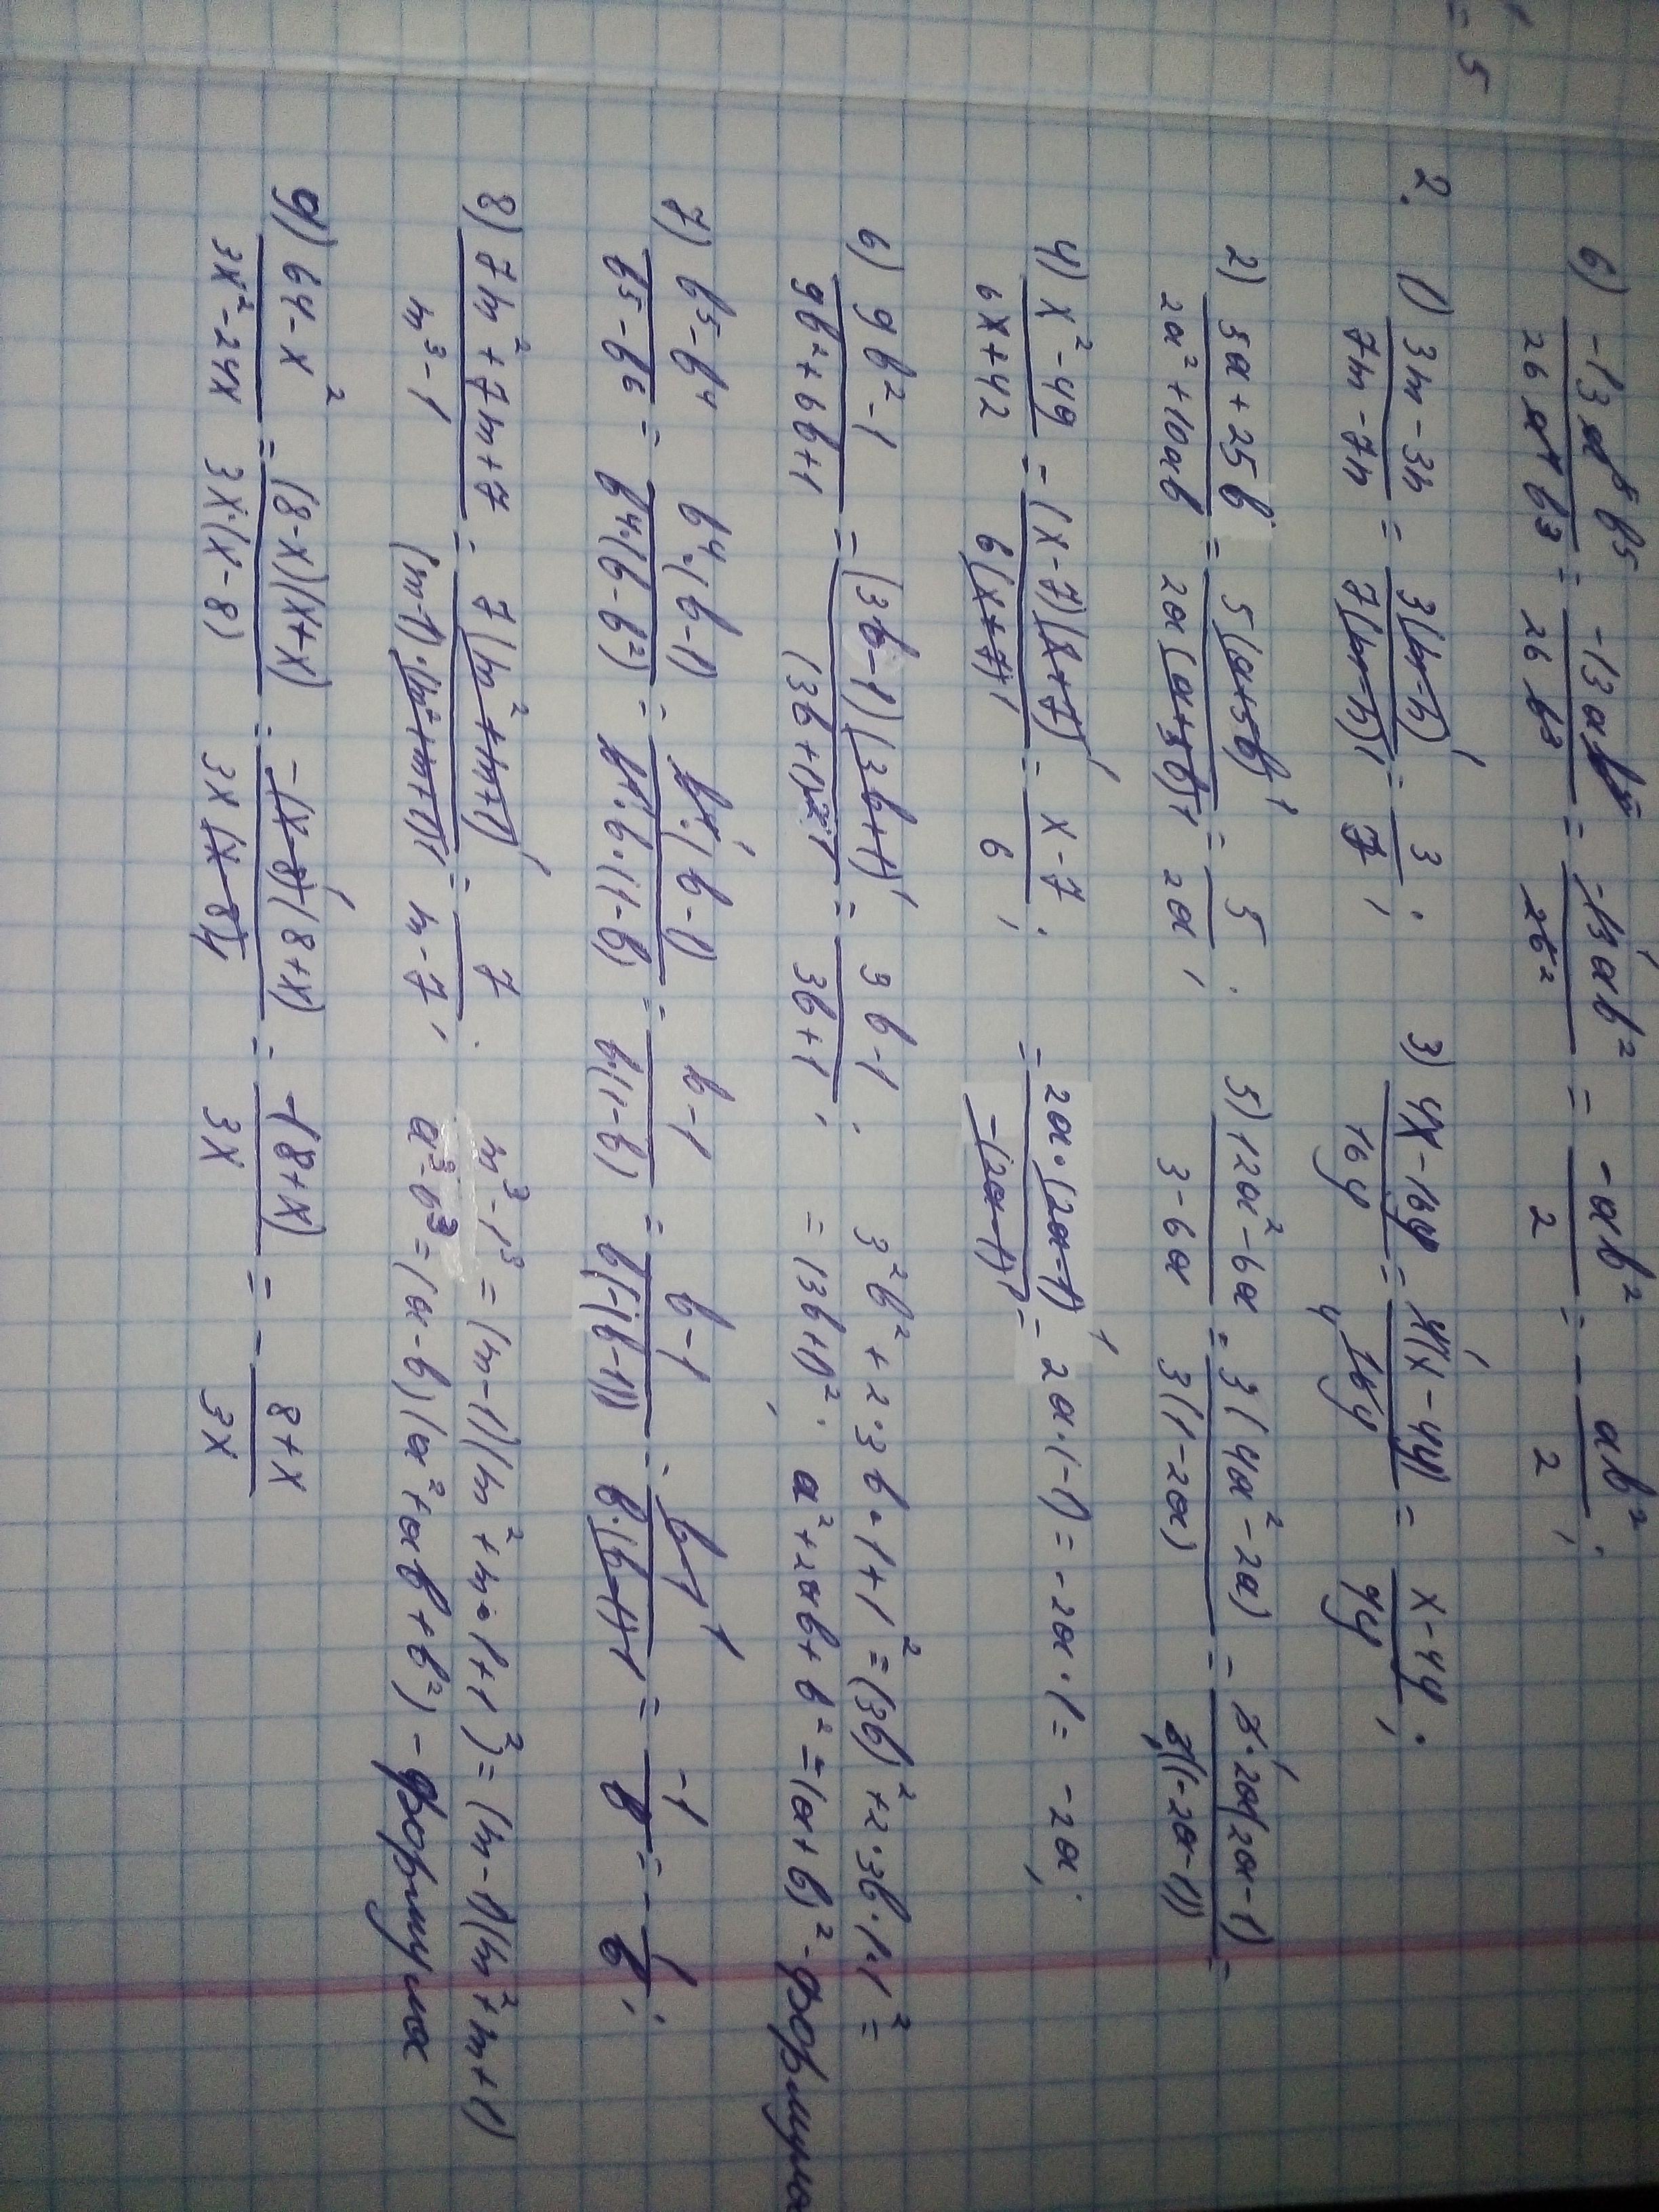 = 5
6) -13a⁵b⁵/26a⁴b³ = -13ab⁵/26b³ = -13ab²/26 = -ab²/2 = -ab²/2;
2. 1) 3m-3n/7m-7n = 3(m-n)/7(m-n) = 3/7; 3) 4x-16y/16y = 4(x-4y)/16y = x-4y/4y;
2) 5a+25b/2a²+10ab = 5(a+5b)/2a(a+5b) = 5/2a; 5) 12a²-6a/3-6a = 3(4a²-2a)/3(1-2a) = 3·2a(2a-1)/3(-2a-1)) =
4) x²-49/6x+42 = (x-7)(x+7)/6(x+7) = x-7/6; = 2a·(2a-1)/-(2a-1) = 2a·(-1) = -2a·1 = -2a;
6) 9b²-1/9b²+6b+1 = (3b-1)(3b+1)/(3b+1)² = 3b-1/3b+1; 3²b²+2·3b·1+1² = (3b)²+2·3b·1·1² =
= (3b+1)²; a²+2ab+b² = (a+b)² - формула
7) b⁵-b⁴/b⁵-b⁶ = b⁴·(b-1)/b⁴·(b-b²) = b⁴·(b-1)/b⁴·b·(1-b) = b-1/b·(1-b) = b-1/b(-(b-1)) = b-1/b·(b-1) = -1/b = -1/b;
8) 7m²+7m+7/m³-1 = 7(m²+m+1)/(m-1)·(m²+m+1) = 7/m-7; m³-1³ = (m-1)(m²+m·1+1²) = (m-1)(m²+m+1)
a³-b³ = (a-b)(a²+ab+b²) - формула
9) 64-x²/3x²-24x = (8-x)(x+x)/3x·(x-8) = -(x-8)(8+x)/3x(x-8) = -(8+x)/3x = -8+x/3x